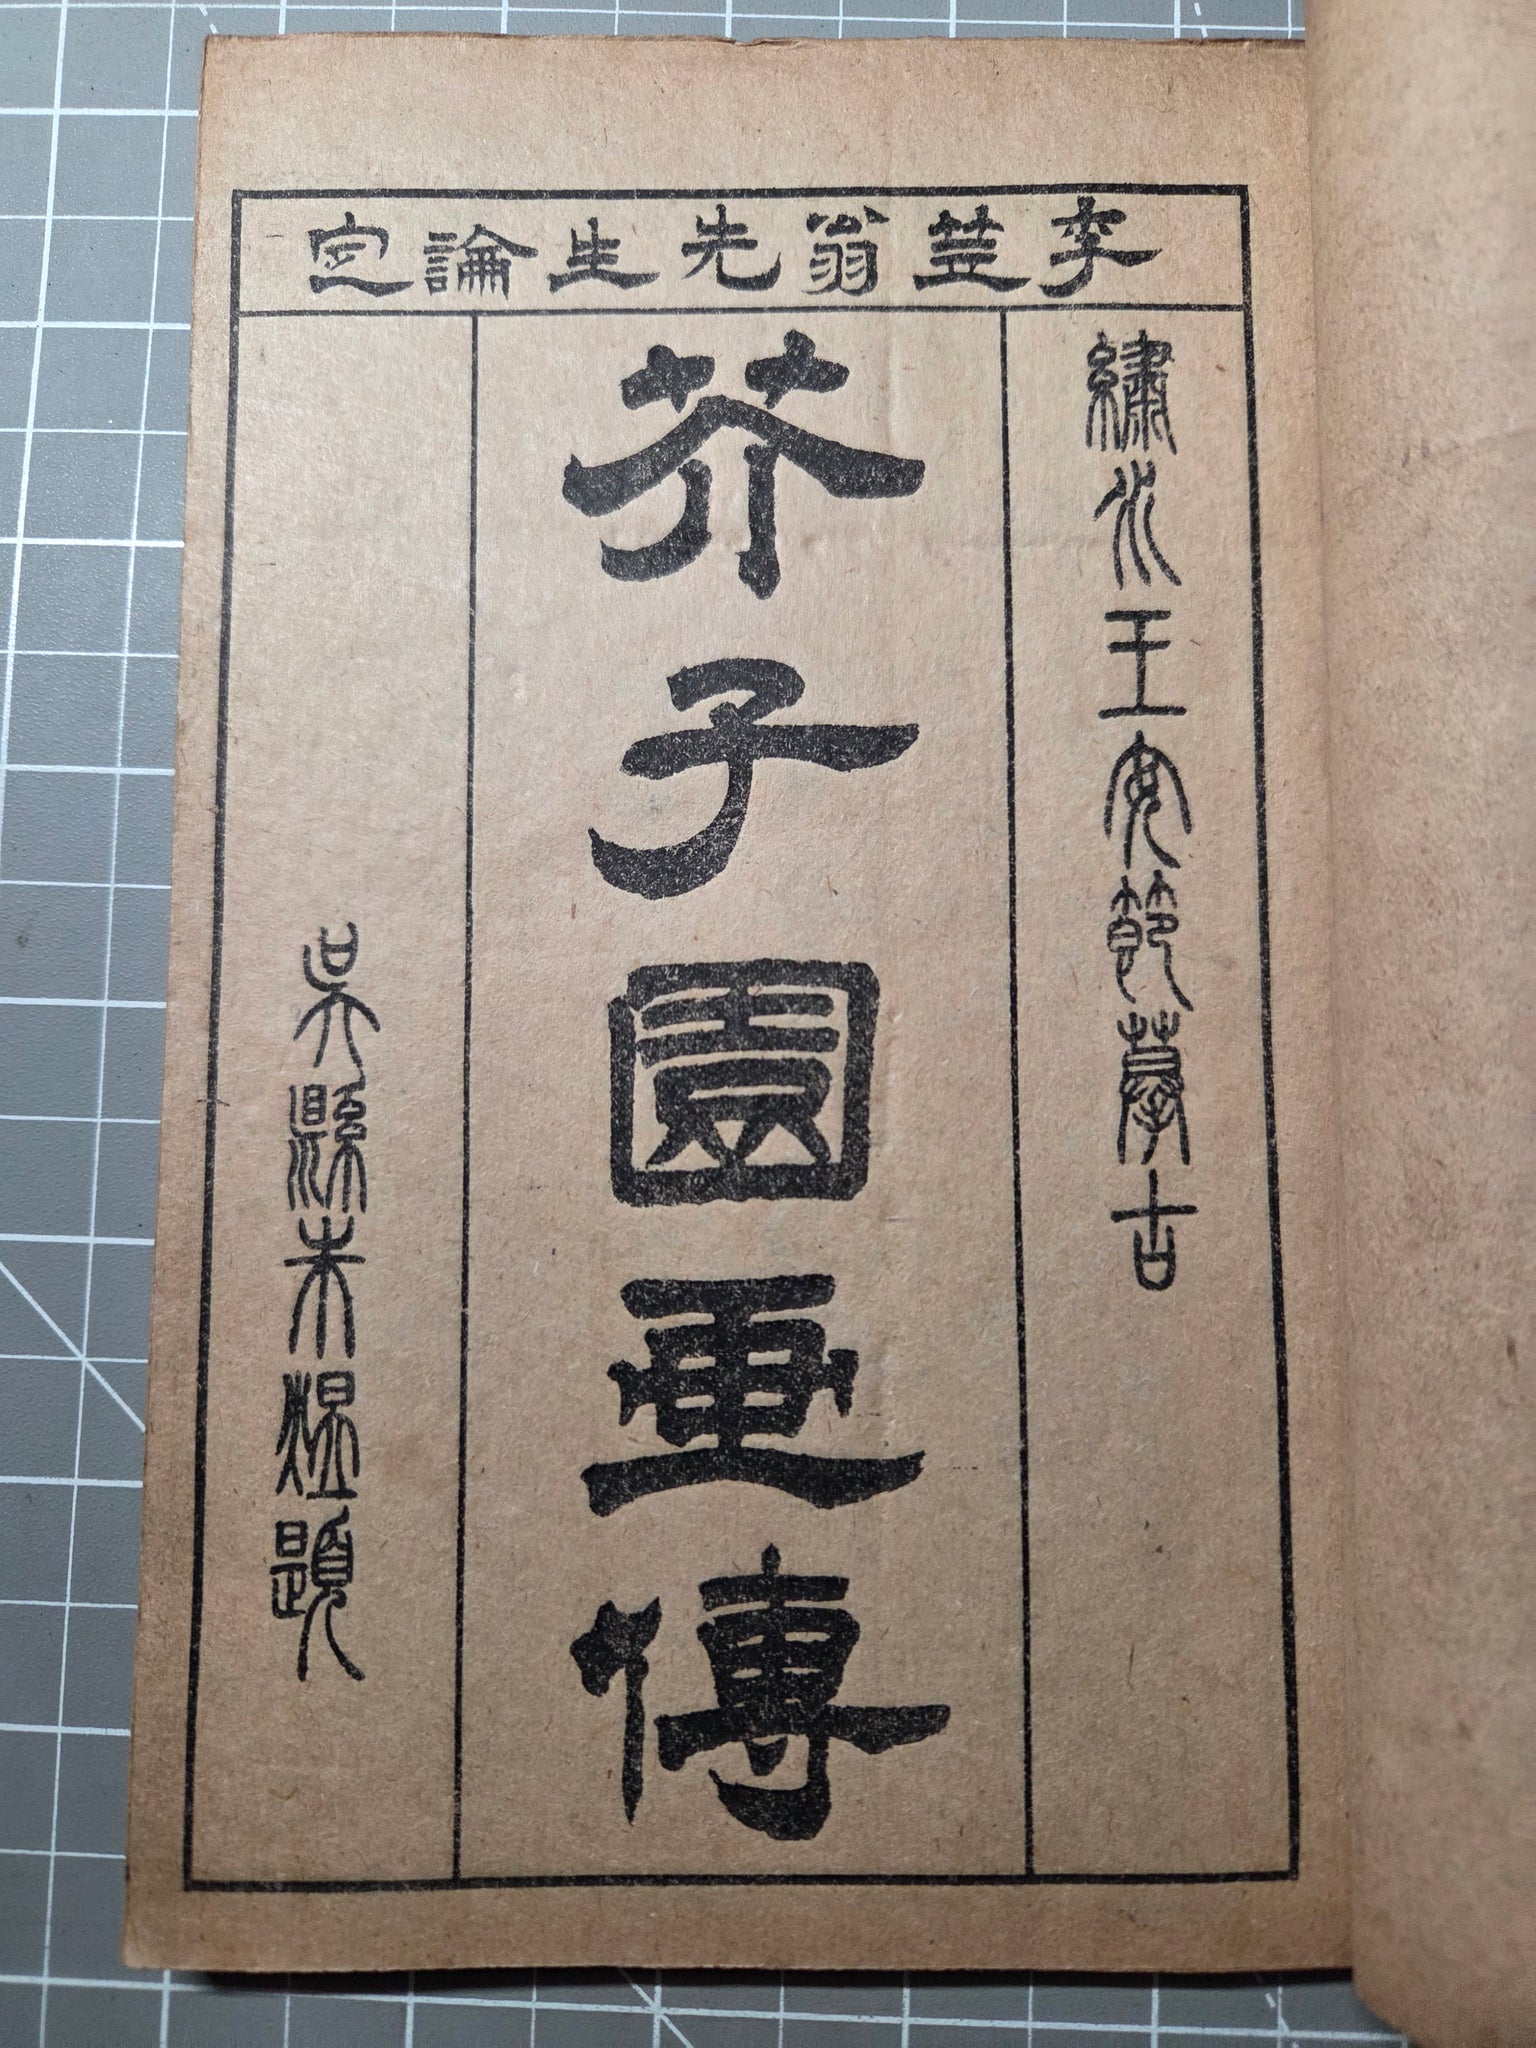 李笠翁先生論定
繡水王安節摹古
芥子園畫傳
吳縣朱煜題